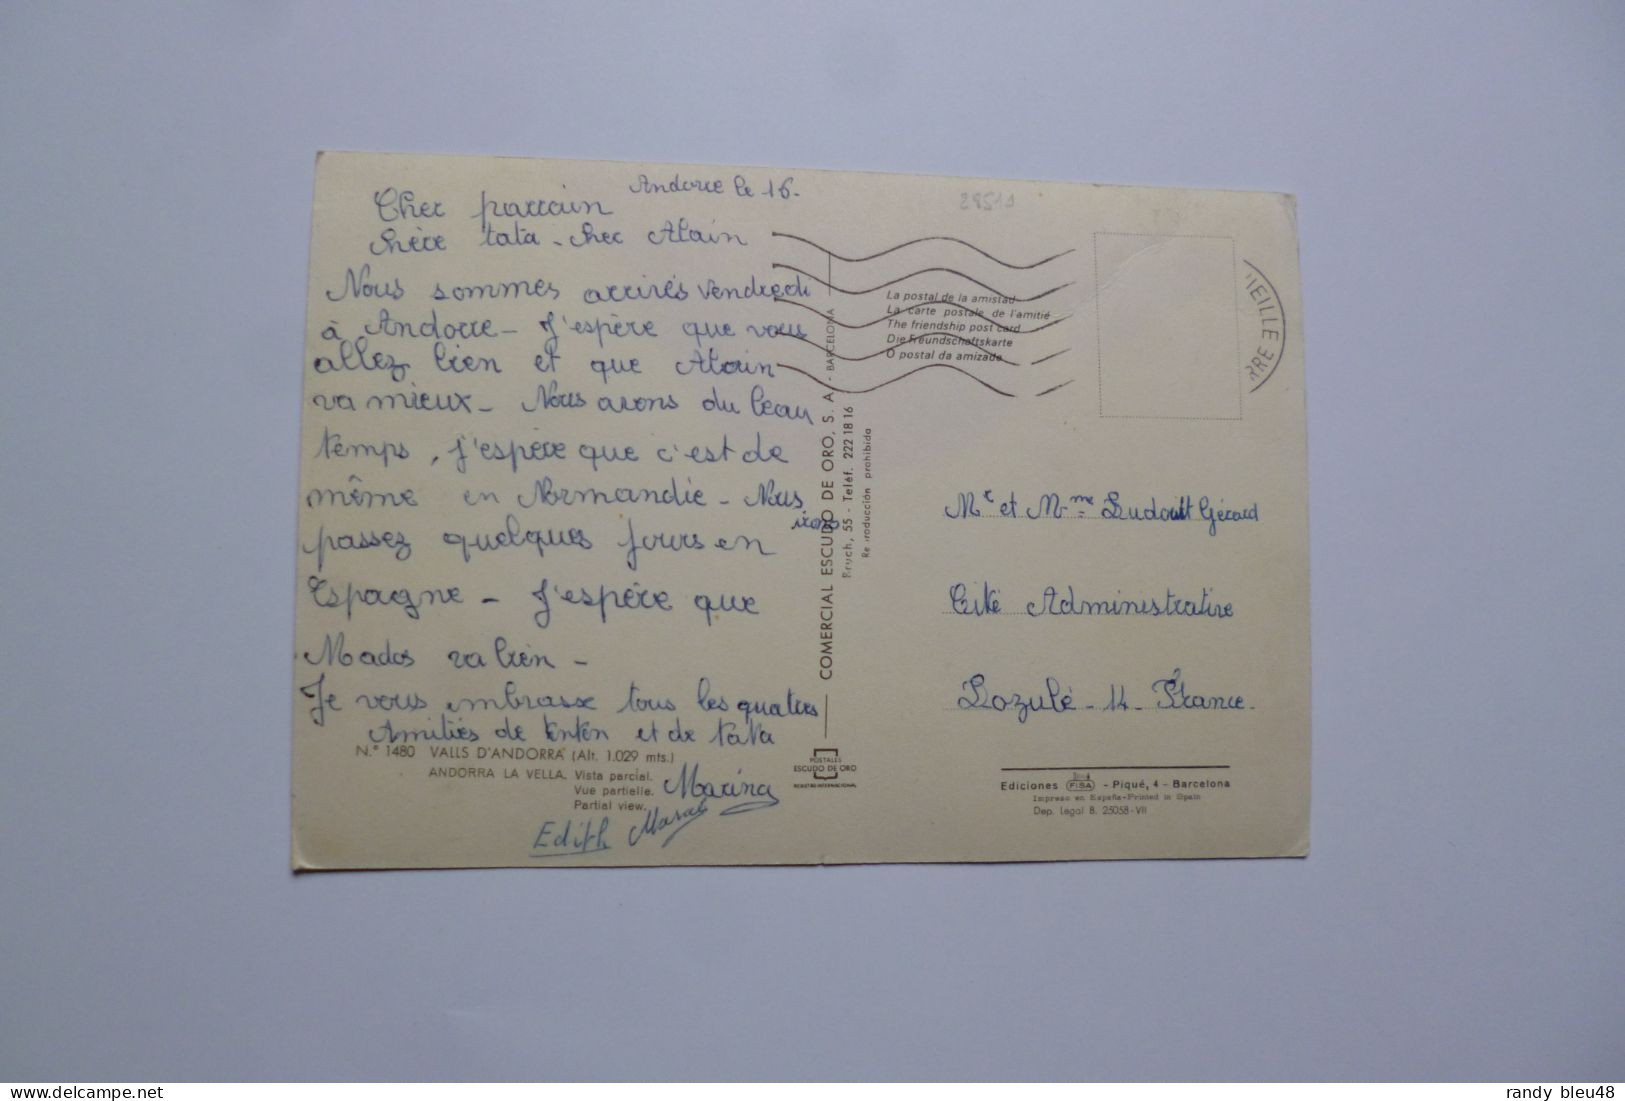 Andorre le 16-
28519
Cher parrain
chère tata - cher Alain
Nous sommes arrivés vendredi
à Andorre - J'espère que vous
allez bien et que Alain
va mieux - Nous avons du beau
temps, j'espère que c'est de
même en Normandie - Nous
irons
passez quelques jours en
Espagne - J'espère que
Mados va bien -
Je vous embrasse tous les quatres
Amitiés de tonton et de tata
Marina
Edith
N.º 1480 VALLS D'ANDORRA (Alt. 1.029 mts.)
ANDORRA LA VELLA. Vista parcial.
Vue partielle.
Partial view.
COMERCIAL ESCUDO DE ORO, S. A. - BARCELONA
Bruch, 55 - Teléf. 222 18 16
Reproducción prohibida
POSTALES
ESCUDO DE ORO
REGISTRO INTERNACIONAL
La postal de la amistad
La carte postale de l'amitié
The friendship post card
Die Freundschaftskarte
O postal da amizade
VIEILLE
RRE
Mr et Mme Gérard
Cité Administrative
Dozulé - 14 - France -
Ediciones FISA - Piqué, 4 - Barcelona
Impreso en España-Printed in Spain
Dep. legal B. 25058-VII
randy bleu48